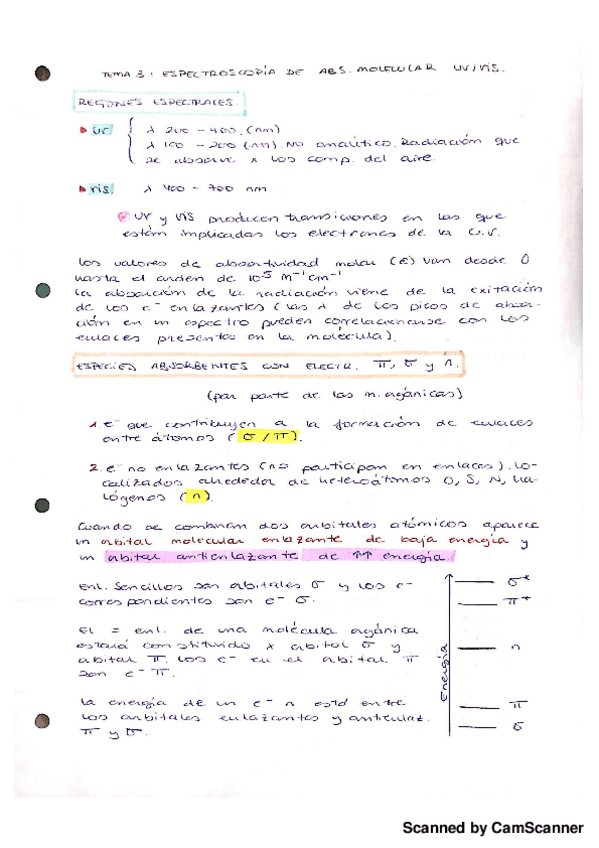 TEMA 3: ESPECTROSCOPÍA DE ABS. MOLECULAR UV/VIS.
REGIONES ESPECTRALES.
UV { λ 200 - 400 (nm)
λ 100 - 200 (nm). No analítico. Radiación que
se absorve x los comp. del aire.
VIS λ 400 - 700 nm.
UV y VIS producen transiciones en las que
están implicadas los electrones de la U.V.
Los valores de absortividad molar (ε) van desde 0
hasta el orden de 10⁵ M⁻¹cm⁻¹
La absorción de la radiación viene de la exitación
de los e⁻ enlazantes (las λ de los picos de absor-
ción en un espectro pueden correlacionarse con los
enlaces presentes en la molécula).
ESPECIES ABSORBENTES CON ELECTR. π, σ y n.
(por parte de las m. orgánicas)
1. e⁻ que contribuyen a la formación de enlaces
entre átomos (σ/π).
2. e⁻ no enlazantes (no participan en enlaces). Lo-
calizados alrededor de heteroátomos O, S, N, ha-
lógenos (n).
Cuando se combinan dos orbitales atómicos aparece
un orbital molecular enlazante de baja energía y
un orbital antienlazante de ↑↑ energía.
Enl. Sencillos son orbitales σ y los e⁻
correspondientes son e⁻ σ.
El = enl. de una molécula orgánica
estará constituido x orbital σ y
orbital π. Los e⁻ en el orbital π
son e⁻ π.
La energía de un e⁻ n está entre
los orbitales enlazantes y antienlaz.
π y σ.
Energía
σ*
π*
n
π
σ
Scanned by CamScanner